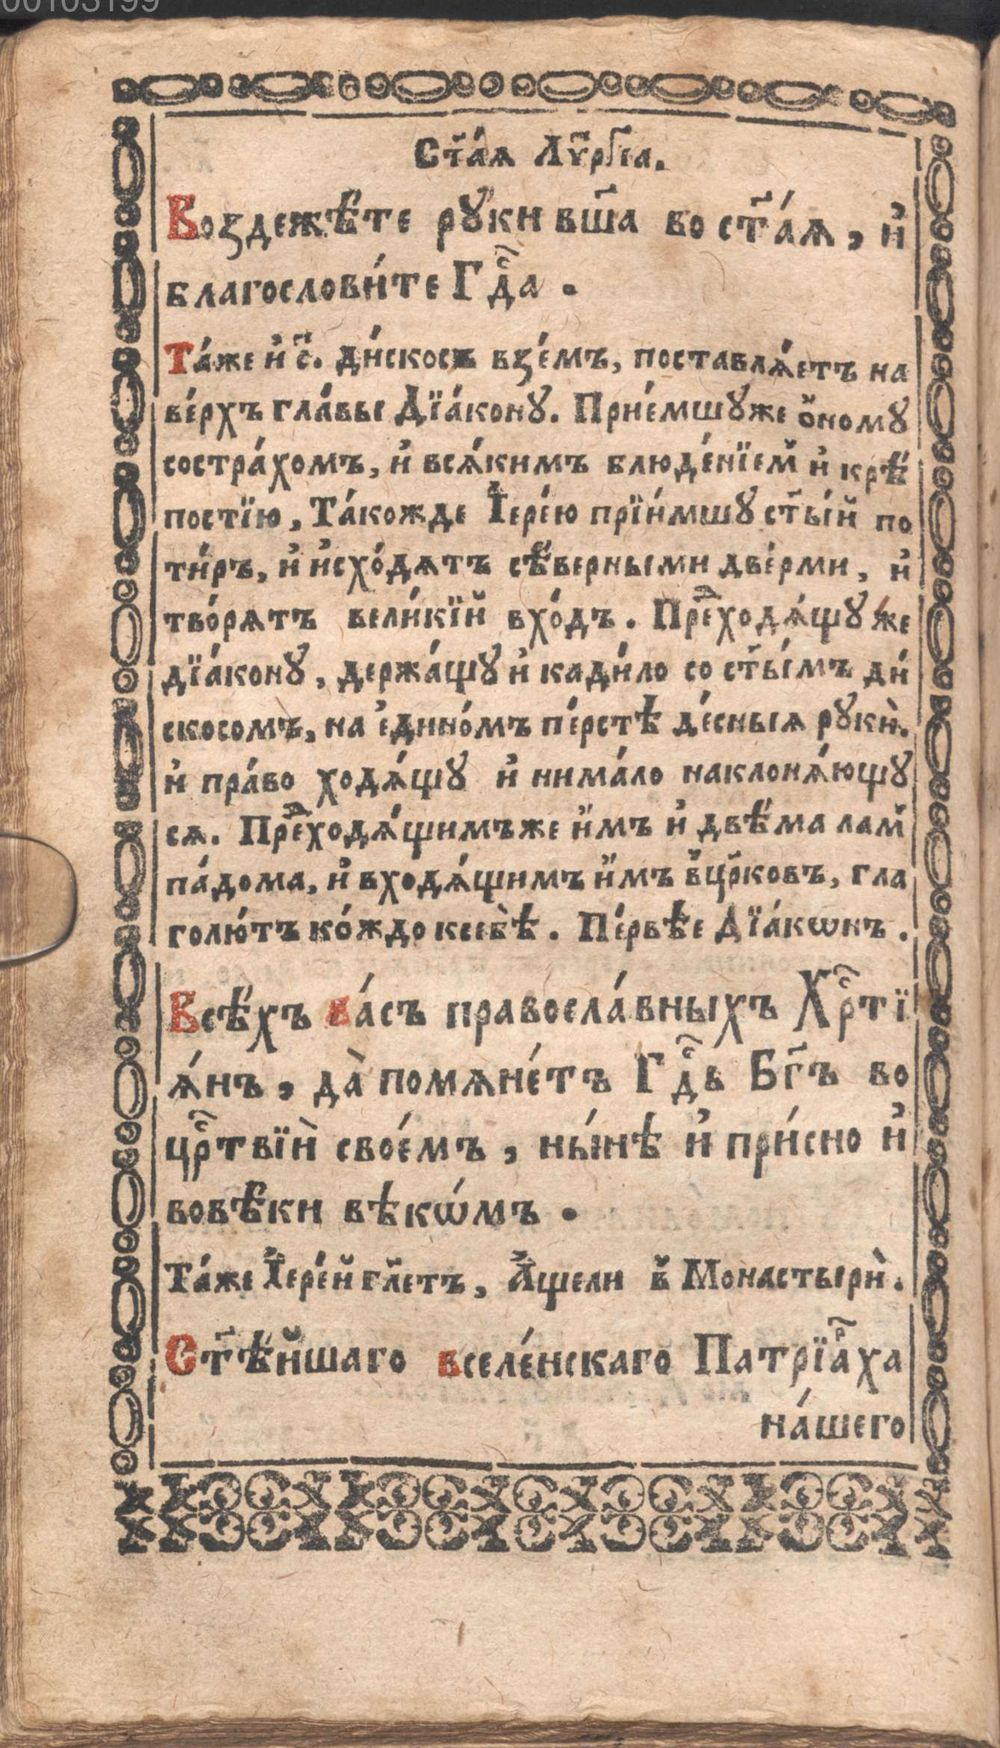 00103199
Ст҃а́ѧ Лѵ҃ргі́а.
Воздежѣ́те рꙋки вш҃а во ст҃а́ѧ, и҆
благослови́те Гдⷭ҇а.
Та́же и҆ с҃. ди́скосъ взе́мъ, поставлѧ́етъ на
ве́рхъ гла́вы Дїа́конꙋ. Прие́мшꙋже ѻ҆номꙋ
состра́хомъ, и҆ всѧ́кимъ блюде́нїем̾ и҆ крѣ́
постїю, Та́кожде І҆ере́ю прїи́мшꙋ ст҃ы́й по
ти́ръ, и҆ и҆схо́дѧтъ сѣ́верными две́рми, и҆
тво́рѧтъ вели́кїй вхо́дъ. Преⷣходѧ́щꙋ же
дїа́конꙋ, держа́щꙋ и҆ кади́ло со ст҃ы́мъ ди́
скосомъ, на є҆дино́мъ пе́рстѣ де́сныѧ рꙋкѝ.
и҆ пра́во ходѧ́щꙋ и҆ нима́ло наклонѧ́ющꙋ
сѧ. Преⷣходѧ́щимъже и҆́мъ и҆ двѣ́ма лам̾
па́дома, и҆ входѧ́щимъ и҆́мъ в̾ цр҃ковъ, гла
голю́тъ ко́ждо ксебѣ́. Пе́рвѣе Дїа́кѡнъ.
Всѣ́хъ ва́съ правосла́вныхъ Хрⷭ҇тї
ѧ́нъ, да̀ помѧне́тъ Гдⷭ҇ь Бг҃ъ во
црⷭ҇твїѝ свое́мъ, ны́нѣ и҆ при́сно и҆
вовѣ́ки вѣкѡ́мъ.
Та́же І҆ере́й гл҃етъ, А҆́щели в̾ Монастырѝ.
Ст҃ѣ́йшаго вселе́нскаго Патрїа́рха
на́шего